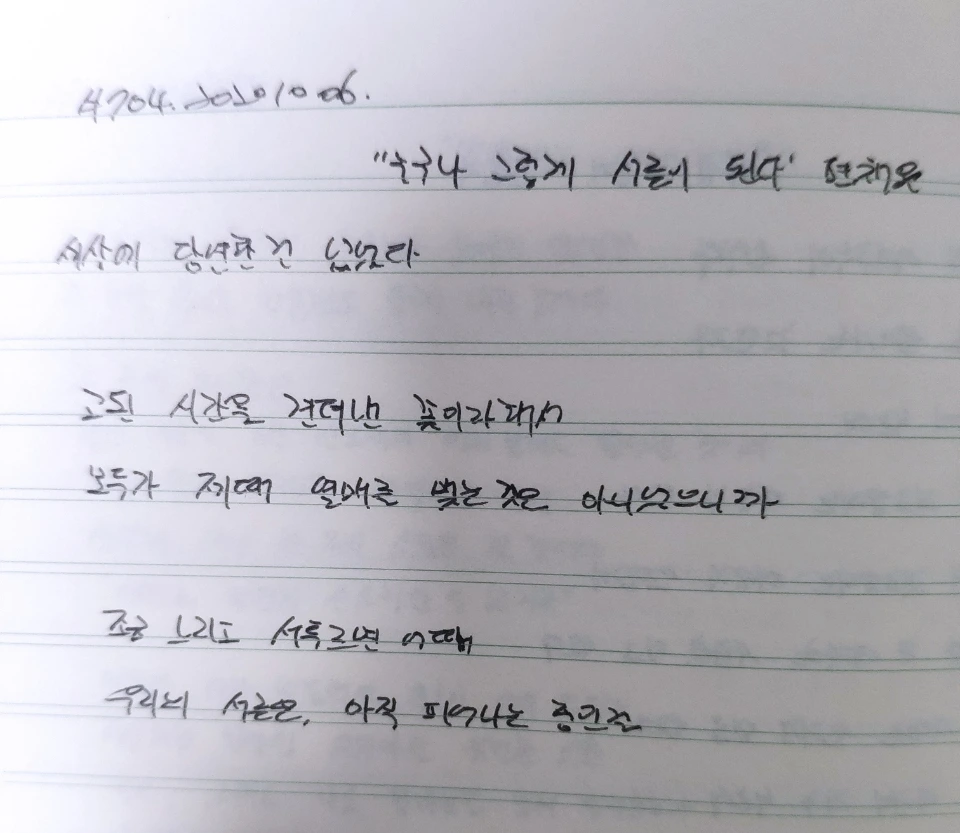 #704. 20201006.
"누구나 그렇게 서른이 된다' 편채원
세상에 당연한 건 없었다
고된 시간을 견뎌낸 꽃이라해서
모두가 제때 열매를 맺는 것은 아니었으니까
조금 느리고 서투르면 어때
우리의 서른은, 아직 피어나는 중인걸